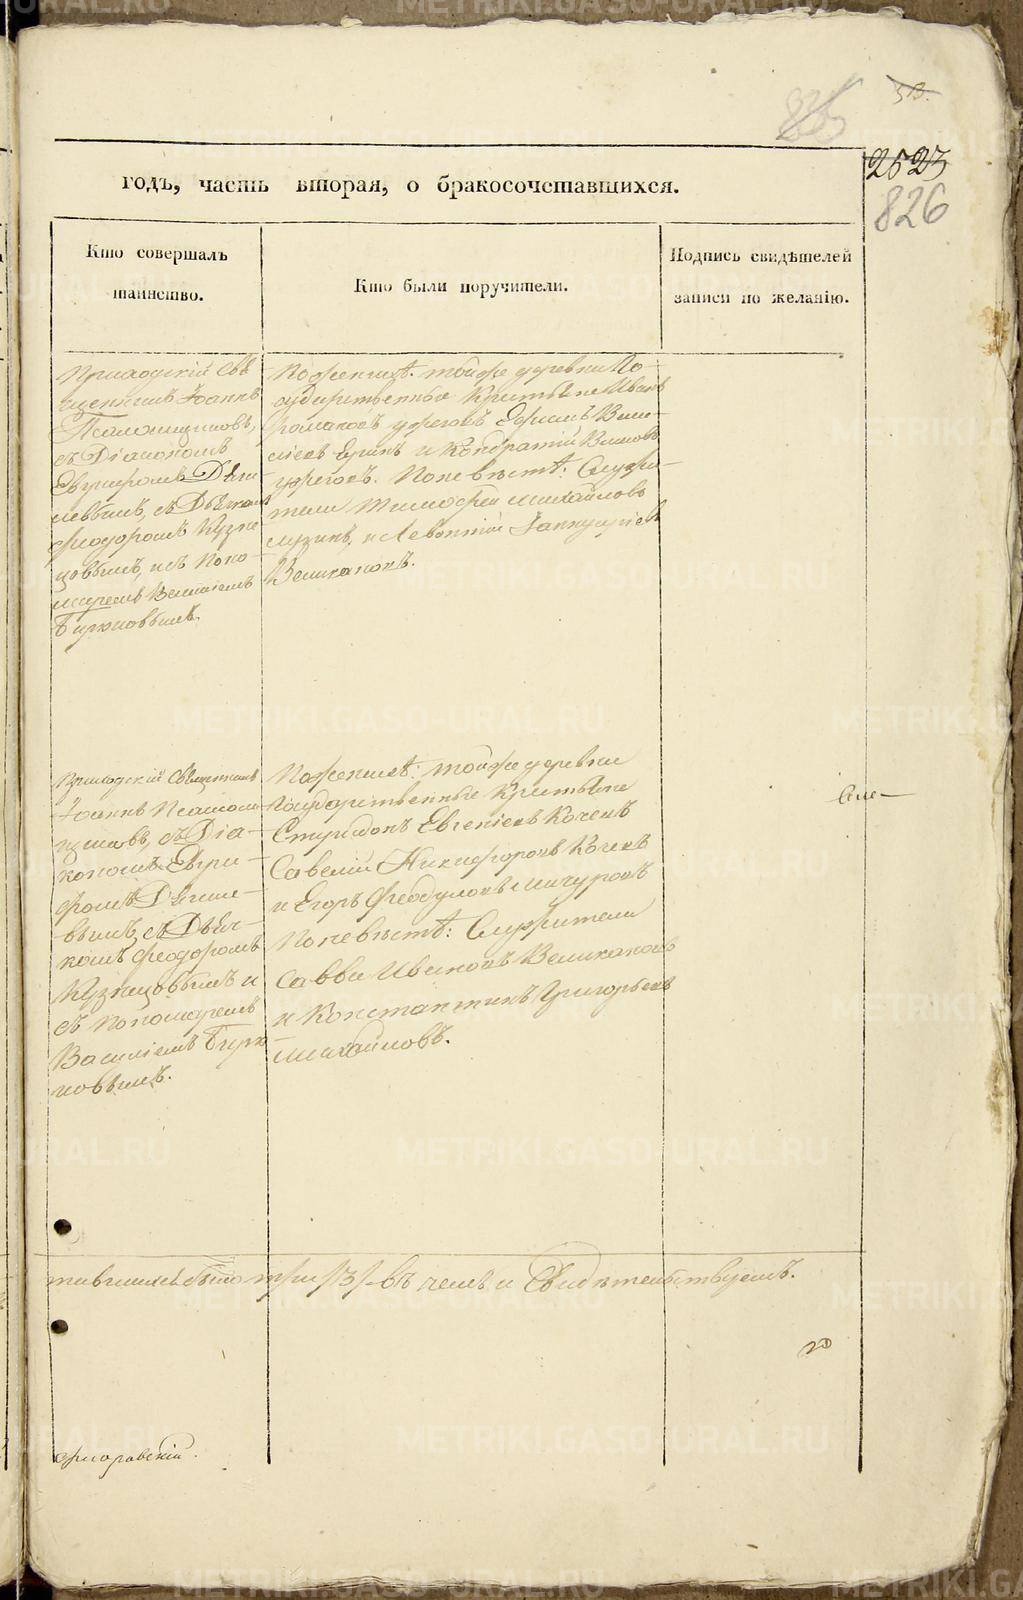 313.
835
2523
826
годъ, часть вторая, о бракосочетавшихся.
Кто совершалъ
таинство.
Кто были поручители.
Подпись свидѣтелей
записи по желанію.
Приходскій Свя
щенникъ Іоаннъ
Псаломщиковъ,
съ Діакономъ
съ Дьячкомъ
Феодоромъ Кузне
цовымъ, и съ Поно-
маремъ Василіемъ
Бирюковымъ.
По женихѣ: тойже деревни Го-
сударственные Крестьяне Иванъ
Ефимъ Васи-
и Кондратій
По невѣстѣ: Служи-
тели Тимофей Михайловъ
и Левонтій
Великановъ.
Приходскій Священникъ
Іоаннъ Псаломъ
щиковъ, съ Діа-
кономъ Евгра-
фомъ
вымъ, съ Дьяч-
комъ Феодоромъ
Кузнецовымъ и
съ Пономаремъ
Василіемъ Бирю
ковымъ.
По женихѣ: тойже деревни
Государственные Крестьяне
Спиридонъ Евгеніевъ Кочевъ
Савелій Никифоровъ Кочевъ
и Егоръ Феодуловъ Мичуровъ
По невѣстѣ: Служители
Савва Ивановъ Великановъ
и Константинъ Григорьевъ
Михайловъ.
тавшихся было три /3/ въ чемъ и Свидѣтельствуемъ.